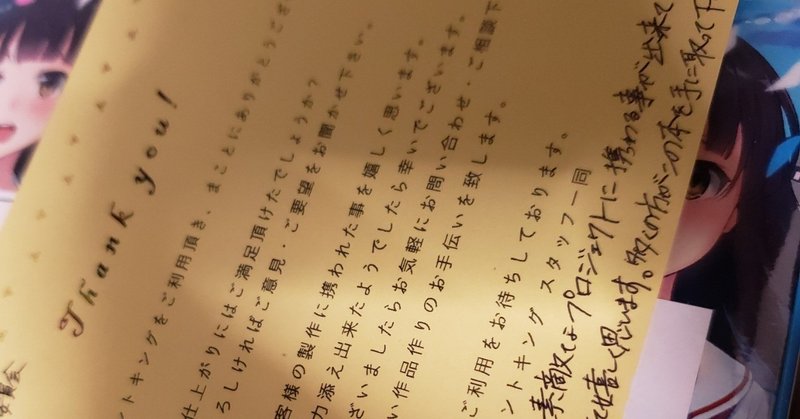 Thank you!
ントキングをご利用頂き、まことにありがとうござ
仕上がりにはご満足頂けたでしょうか?
ろしければご意見・ご要望をお聞かせ下さい。
客様の製作に携われた事を嬉しく思います。
力添え出来たようでしたら幸いでございます。
ざいましたらお気軽にお問い合わせ・ご相談下
い作品作りのお手伝いを致します。
ご利用をお待ちしております。
ントキング スタッフ一同
素敵なプロジェクトに携わる事が出来て
嬉しく思います。多くの方がこの本を手に取って下